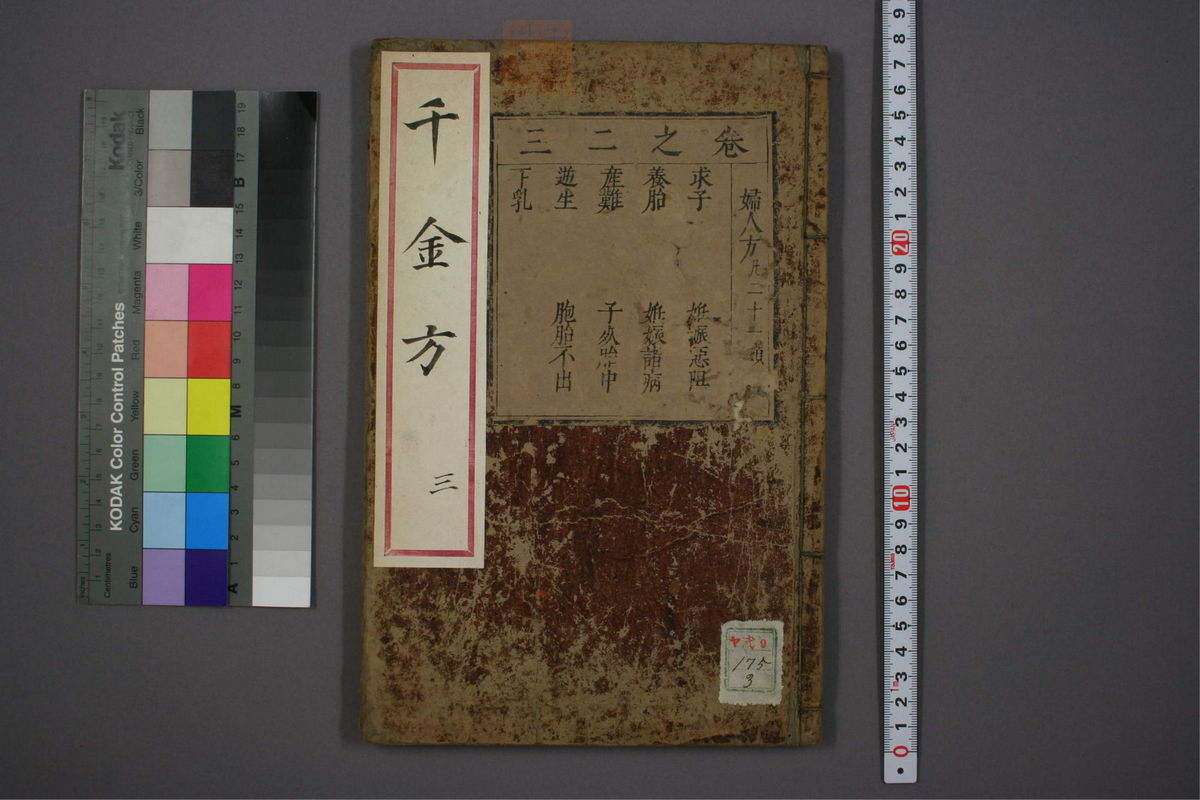 千金方
三
卷之二三
婦人方凡二十一類
求子
姙娠惡阻
養胎
姙娠諸病
産難
子
逆生
胞胎不出
下乳
175
3
KODAK Color Control Patches
Kodak
Inches
Centimetres
Blue
Cyan
Green
Yellow
Red
Magenta
White
3/Color
Black
A 1 2 3 4 5 6 M 8 9 10 11 12 13 14 15 B 17 18 19
0 1 2 3 4 5 6 7 8 9 10 1 2 3 4 5 6 7 8 9 20 1 2 3 4 5 6 7 8 9